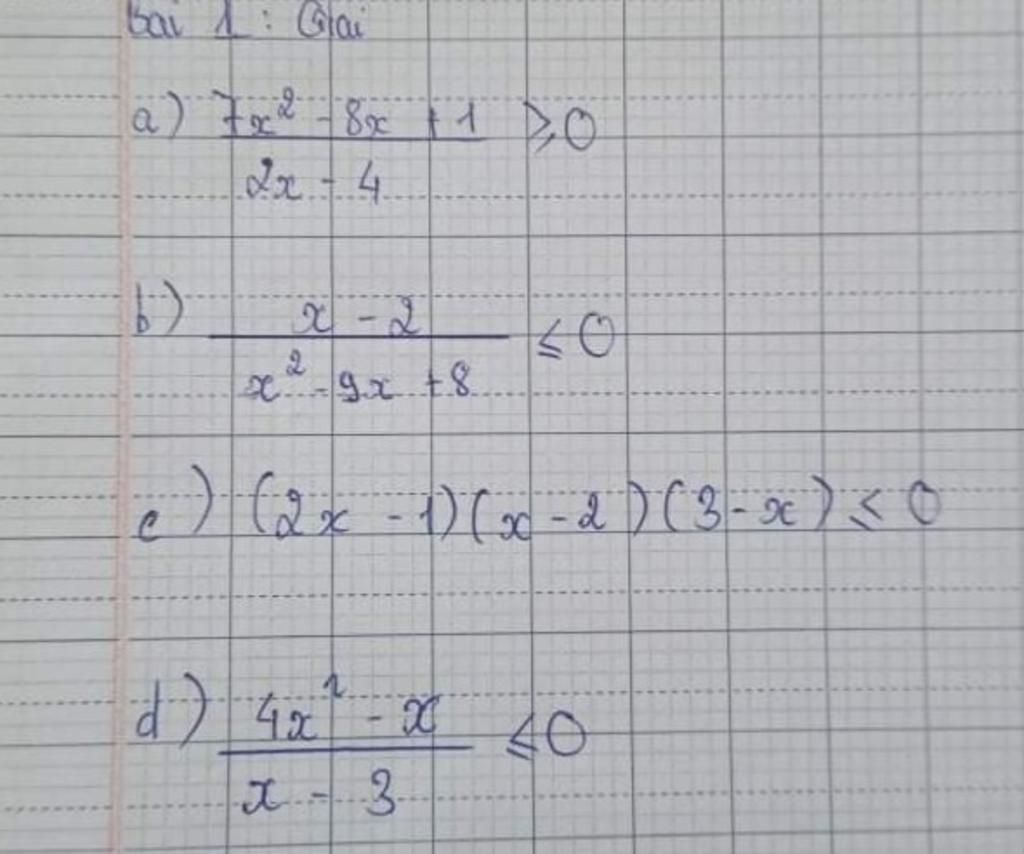 bài 1 : Giải
a) (7x² - 8x + 1)/(2x - 4) ⩾ 0
b) (x - 2)/(x² - 9x + 8) ⩽ 0
c) (2x - 1)(x - 2)(3 - x) ⩽ 0
d) (4x² - x)/(x - 3) ⩽ 0